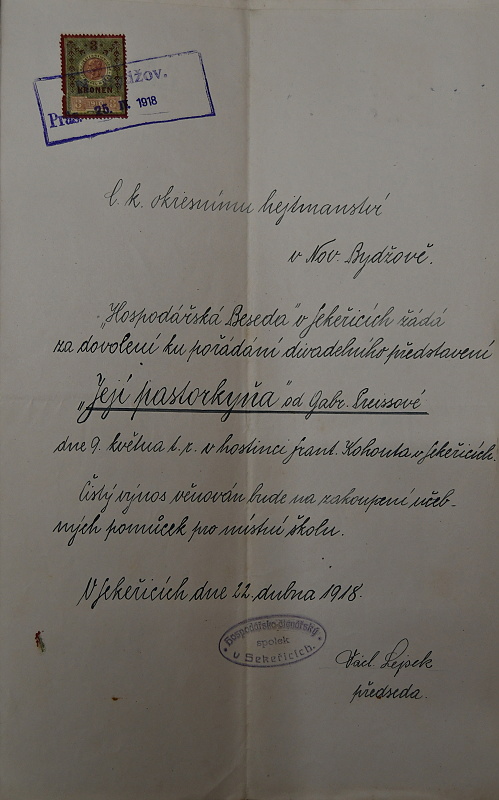 3
KRONEN
25. IV. 1918
C. k. okresnímu hejtmanství
v Nov. Bydžově.
„Hospodářská Beseda" v Sekeřicích žádá
za dovolení ku pořádání divadelního představení
„Její pastorkyňa" od Gabr. Preissové
dne 9. května t. r. v hostinci Frant. Kohouta v Sekeřicích.
Čistý výnos věnován bude na zakoupení učeb-
ných pomůcek pro místní školu.
V Sekeřicích dne 22. dubna 1918.
Hospodářsko-čtenářský
spolek
v Sekeřicích.
Václ. Lejsek
předseda.